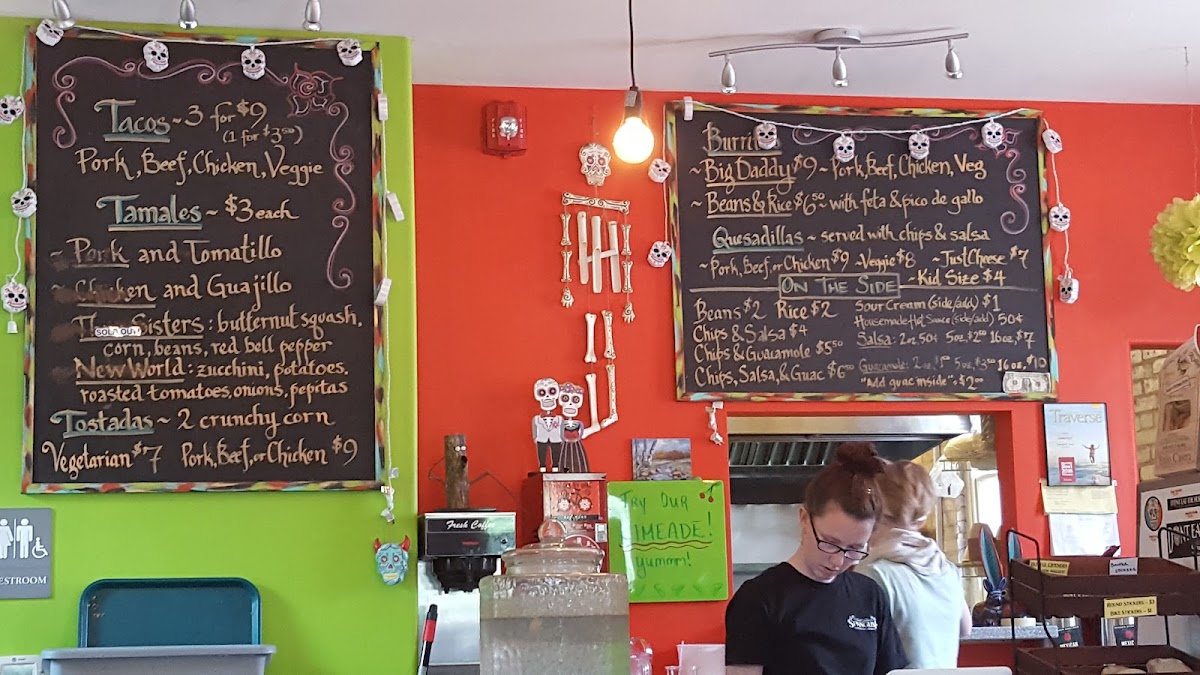 Tacos ~ 3 for $9
(1 for $3.50)
Pork, Beef, Chicken, Veggie
Tamales ~ $3 each
~ Pork and Tomatillo
Chicken and Guajillo
Sisters: butternut squash,
SOLD OUT!
corn, beans, red bell pepper
~ New World: zucchini, potatoes,
roasted tomatoes, onions, pepitas
Tostadas ~ 2 crunchy corn
Vegetarian $7 Pork, Beef, or Chicken $9
~ Big Daddy $9 ~ Pork, Beef, Chicken, Veg
~ Beans & Rice $6.50 ~ with feta & pico de gallo
Quesadillas ~ served with chips & salsa
~ Pork, Beef, or Chicken $9 ~ Veggie $8 ~ Just Cheese $7
ON THE SIDE ~ Kid Size $4
Beans $2 Rice $2
Chips & Salsa $4
Chips & Guacamole $5.50
Chips, Salsa, & Guac $6.50
Sour Cream (side/add) $1
Housemade Hot Sauce (side/add) 50¢
Salsa: 2 oz. 50¢ 5 oz. $2.50 16 oz. $7
Guacamole: 2 oz. 5 oz. $3.50 16 oz. $10
"Add guac inside" ~ $2.00
TRY OUR
LIMEADE!
yummm!
Fresh Coffee
RESTROOM
Traverse